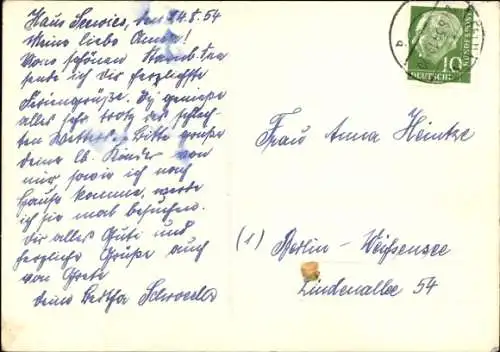 Haus Seewies, den 24.8.54
Meine liebe Anna!
Vom schönen Starnb. See
sende ich dir herzlichste
Feriengrüße. Ich genieße
alles sehr trotz des schlech-
ten Wetters. Bitte grüße
deine lb. Kinder von
mir sowie ich nach
Hause komme, werde
ich sie mal besuchen.
Dir alles Gute und
herzliche Grüße auch
von Grete
deine Bertha Schroeder
Frau Anna Heintze
(1) Berlin-Weißensee
Lindenallee 54
10
DEUTSCHE
BUNDESPOST